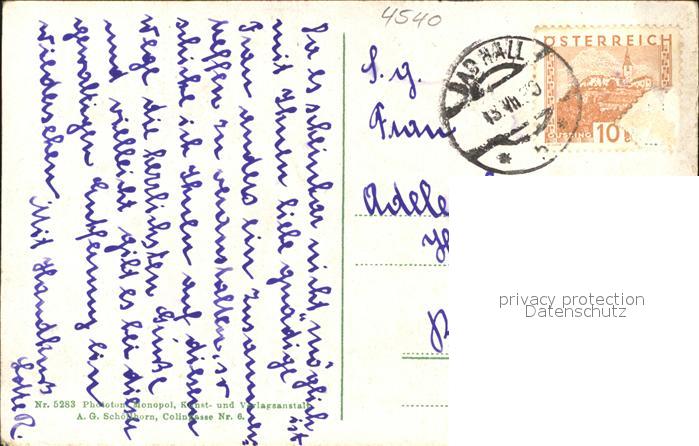 4540
Da es scheinbar nicht möglich ist
mit Ihnen liebe gnädige
Frau anders ein Zusammen-
treffen zu veranstalten, so
schicke ich Ihnen auf diesem
Wege die herzlichsten Grüße
und vielleicht gibt es bei dieser
gewaltigen Entfernung ein
Wiedersehen. Mit Handkuß
S. g.
Frau
Adele
BAD HALL
ÖSTERREICH
10
privacy protection
Datenschutz
Nr. 5283 Phototon Monopol, Kunst- und Verlagsanstalt
A. G. Schönhorn, Colingasse Nr. 6.